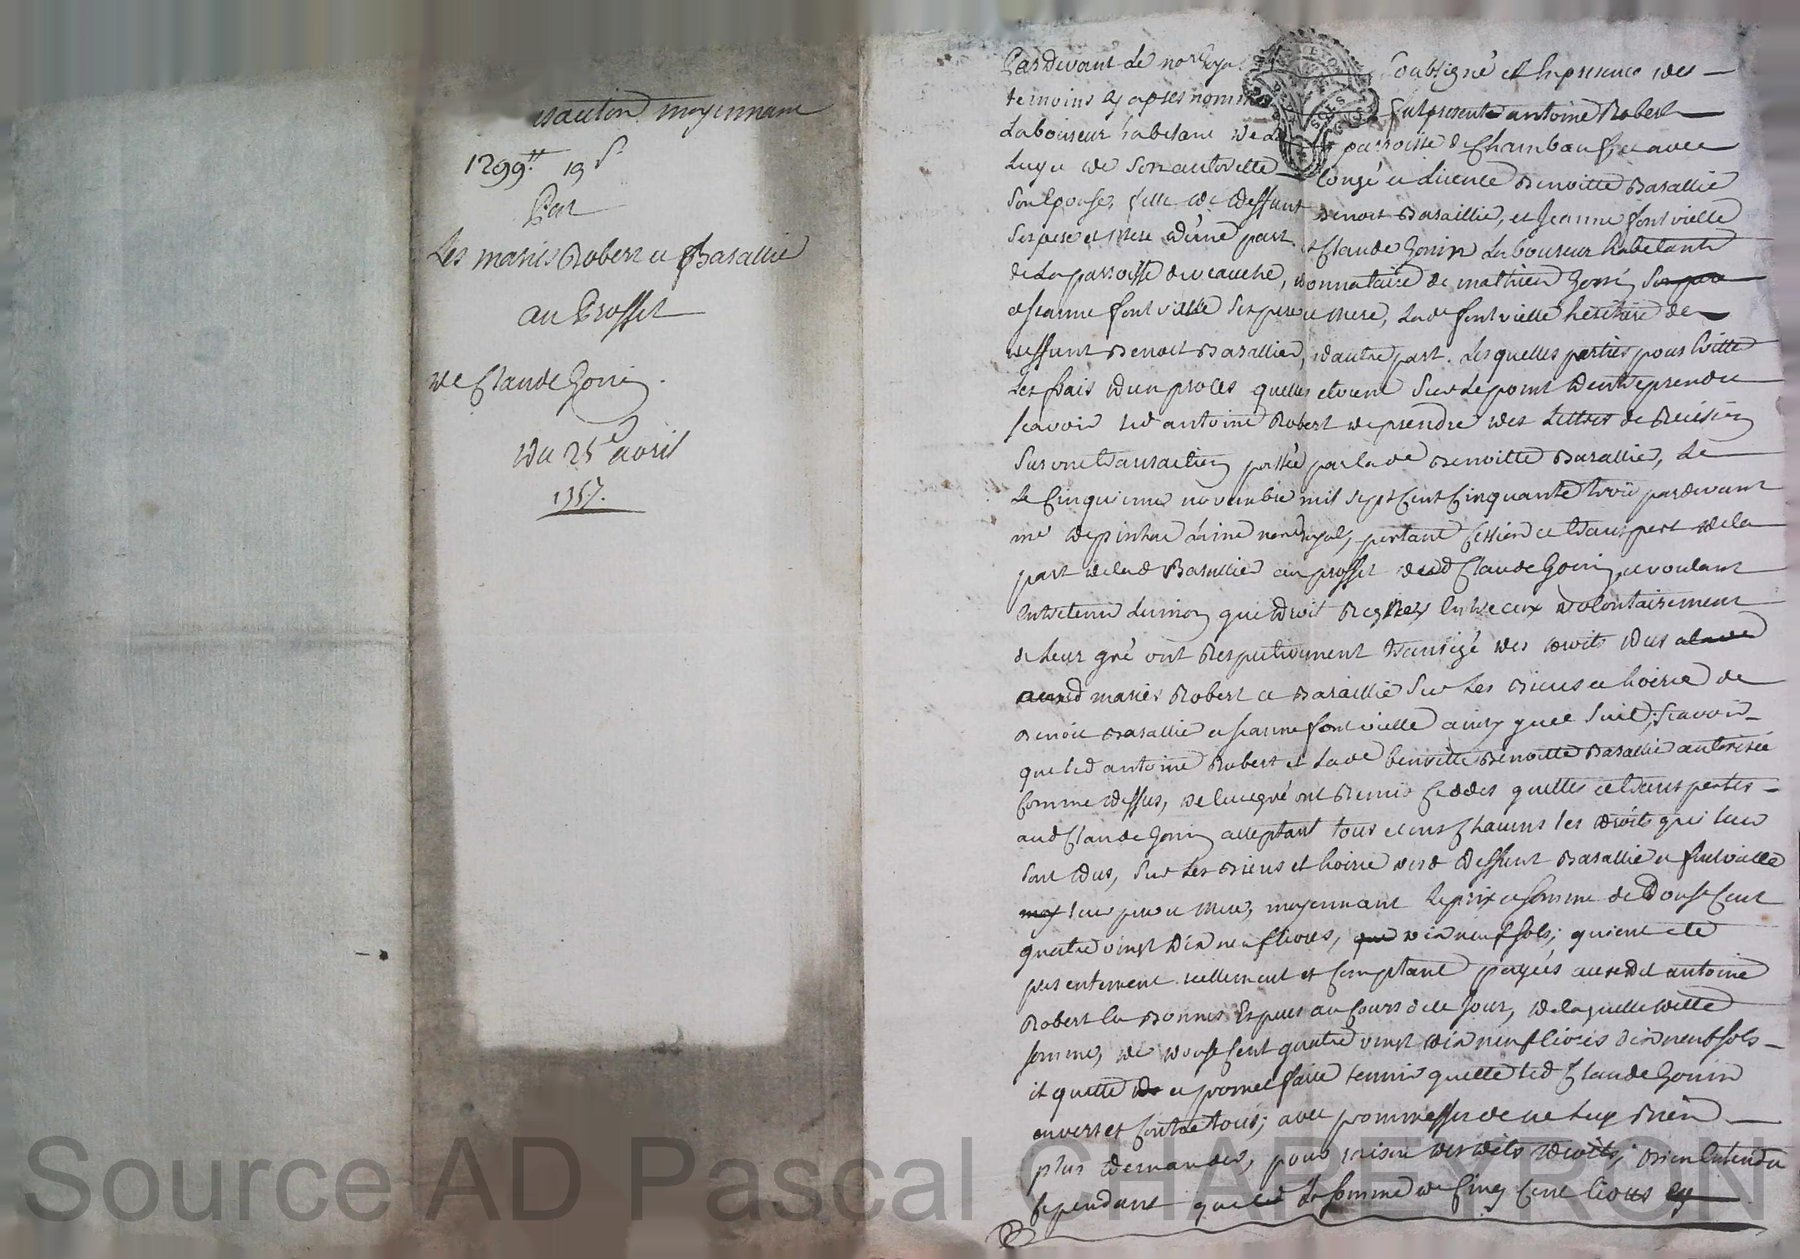 moyennant
1299ᵗᵗ 19ˢ
Par
Les mariés Robert et Barallié
au Proffit
de Claude Gonin
Du 25ᵉ avril
1757.
Pardevant Le noʳᵉ Royal soubsigné et En presence des
temoins cy apres nommés fut present antoine Robert
Laboureur habitant de La parroisse de Chambœuf, et avec
Luy et de Son autorité Congé et Licence Benoitte Barallié
Son Epouse, fille de deffunt Benoit Baraillié, et Jeanne fontvielle
Ses pere et mere d'une part. et Claude Gonin Laboureur habitant
de La parroisse de veauche, donnataire de mathieu Gonin Ses pere
et Jeanne fontvielle Ses pere et mere, Lad fontvielle heritiere de
deffunt Benoit Barallié, d'autre part. Lesquelles parties pour Evitter
Les frais d'un proces quelles etoient Sur Le point d'entreprendre
scavoir led antoine Robert de prendre des Lettres de Recision
Sur une transaction passée par lade Benoitte Barallié, Le
Le Cinquieme novembre mil sept Cent Cinquante trois pardevant
mᵉ noʳᵉ Royal, portant Cession et transport de la
part de lad Barallié au proffit dud Claude Gonin, et voulant
Entretenir Lunion qui doit Regner Entre eux volontairement
de Leur gré ont Respectivement transigé des droits dus a lade
auxd mariés Robert et Baraillié Sur Les Biens et hoirie de
Benoit Barallié et Jeanne fontvielle ainsy que Suit; Scavoir
que led antoine Robert et Lade benoitte Benoitte Barallié autorisée
Comme dessus, de leur gré ont Remis Ceddés quittés et transportés
aud Claude Gonin acceptant tous et uns Chacuns les droits qui leur
sont dus, Sur Les Biens et hoirie desd deffunt Barallié et fontvielle
leur pere et mere, moyennant Le prix et somme de Douse Cent
quatre vingt Dix neuf livres, que dix neuf sols; qui ont eté
presentement reellement et Comptant payés audit antoine
Robert En Bonnes Espèces au Cours de ce Jour, de laquelle ditte
somme, de douse Cent quatre vingt dix neuf livres dix neuf sols
it quitte de et promet faire tenir quitte led Claude Gonin
envers et Contre tous; avec prommesse de ne Luy Rien
plus demander, pour raison desdits droits; Bien Entendu
Cependant que la somme de Cinq Cent livres
Source AD Pascal CHAREYRON